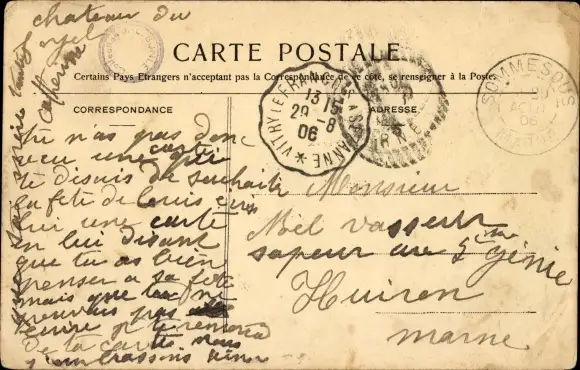 chateau du
CARTE POSTALE
Certains Pays Etrangers n'acceptant pas la Correspondance de ce côté, se renseigner à la Poste.
CORRESPONDANCE
ADRESSE
VITRY LE FRANÇOIS A SEZANNE
13 15
29 - 8
06
SOMMESOUS
AOUT
06
MARNE
tu n'as pas donc
recu une carte qui
te disais de souhaiter
la fête de Louis
lui une carte
en lui disant
que tu as bien
penser a sa fete
mais que tu ne
pouvais pas
ecrire je te remercie
de ta carte nous
t'embrassons
Monsieur
Noël Vasseur
sapeur au 5me Génie
Huiron
marne